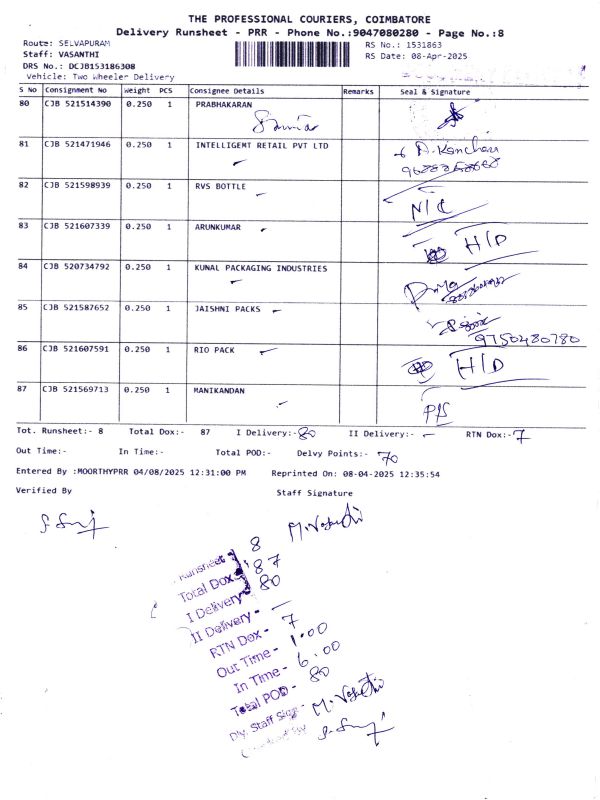 THE PROFESSIONAL COURIERS, COIMBATORE
Delivery Runsheet - PRR - Phone No.:9047080280 - Page No.:8
Route: SELVAPURAM
Staff: VASANTHI
DRS No.: DCJB153186308
Vehicle: Two Wheeler Delivery
RS No.: 1531863
RS Date: 08-Apr-2025
S No Consignment No Weight PCS Consignee Details Remarks Seal & Signature
80 CJB 521514390 0.250 1 PRABHAKARAN
81 CJB 521471946 0.250 1 INTELLIGEMT RETAIL PVT LTD
82 CJB 521598939 0.250 1 RVS BOTTLE N/C
83 CJB 521607339 0.250 1 ARUNKUMAR H/D
84 CJB 520734792 0.250 1 KUNAL PACKAGING INDUSTRIES
85 CJB 521587652 0.250 1 JAISHNI PACKS
9750480780
86 CJB 521607591 0.250 1 RIO PACK H/D
87 CJB 521569713 0.250 1 MANIKANDAN P/S
Tot. Runsheet:- 8 Total Dox:- 87 I Delivery:- 80 II Delivery:- — RTN Dox:- 7
Out Time:- In Time:- Total POD:- Delvy Points:- 70
Entered By :MOORTHYPRR 04/08/2025 12:31:00 PM Reprinted On: 08-04-2025 12:35:54
Verified By Staff Signature
M. Vasanthi
Runsheet - 8
Total Dox - 87
I Delivery - 80
II Delivery - —
RTN Dox - 7
Out Time - 1.00
In Time - 6.00
Total POD - 80
Dly. Staff Sign - M. Vasanthi